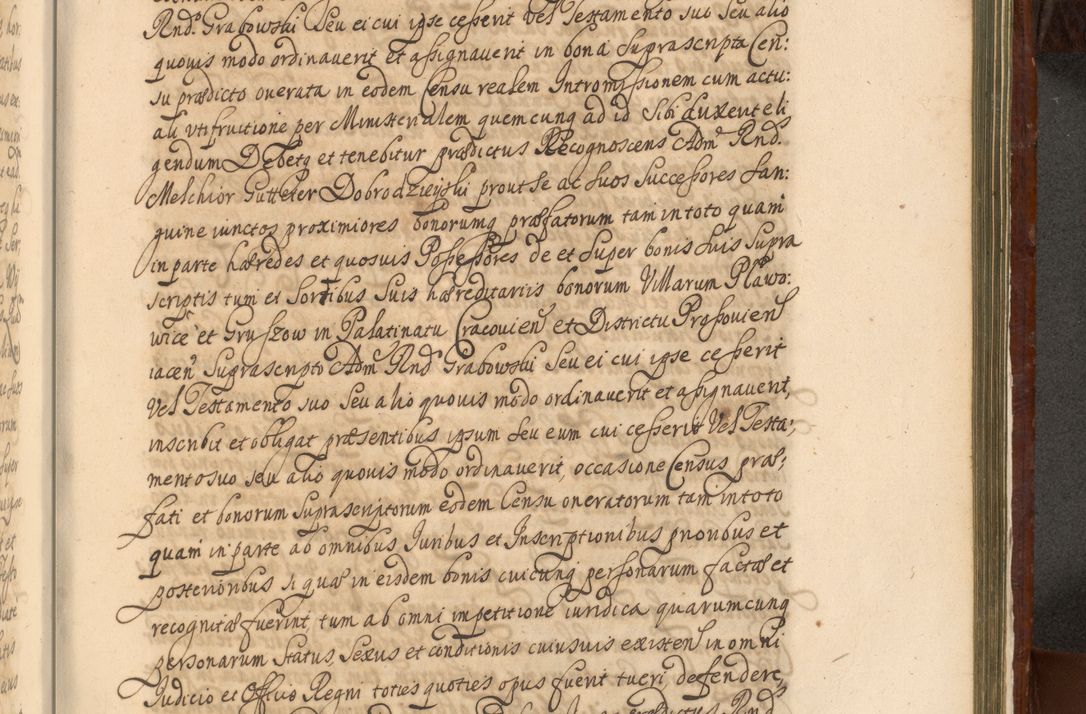 Rnd. Grabowski seu ei cui ipse cesserit Vel Testamento suo seu alio
quouis modo ordinauerit et assignauerit in bona suprascripta Cen:
su prædicto onerata in eodem Censu realem Intromissionem cum actu:
ali vtifruitione per Ministerialem quemcunq ad id Sibi duxerit eli
gendum Debetq et tenebitur prædictus Recognoscens Adm Rnd.
Melchior Gutteter Dobrodzieyski prout se ac suos Successores san:
guine iunctos proximiores bonorumq præfatorum tam in toto quam
in parte hæredes et quosuis Possessores de et super bonis suis supra
scriptis tum et Sortibus suis hæreditariis bonorum Villarum Pławo:
wice et Gruszow in Palatinatu Cracouien et Districtu Proszouien
iacen suprascripto Adm Rnd Grabowski seu ei cui ipse cesserit
Vel Testamento suo seu alio quouis modo ordinauerit et assignauerit,
inscribit et obligat præsentibus ipsum seu eum cui cesserit Vel Testa:
mento suo seu alio quouis modo ordinauerit, occasione Census præ:
fati et bonorum suprascriptorum eodem Censu oneratorum tam in toto
quam in parte ab omnibus Iuribus et Inscriptionibus prioribus et
posterioribus si quæ in eisdem bonis cuicunq personarum factæ et
recognitæ fuerint tum ab omni impetitione iuridica quarumcunq
personarum status, sexus et conditionis cuiusuis existen in omni
Iudicio et Officio Regni toties quoties opus fuerit tueri defendere,